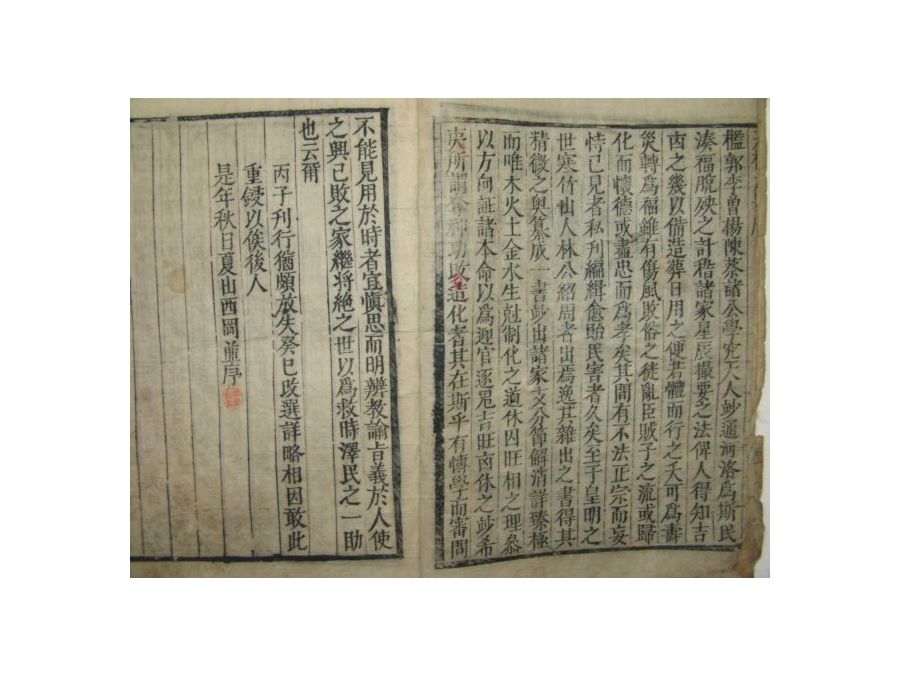 檻郭李曾楊陳蔡諸公學究天人妙通河洛爲斯民
湊福脫殃之計稽諸家星辰撮要之法俾人得知吉
凶之幾以備造葬日用之便若體而行之夭可爲壽
災轉爲福雖有傷風敗俗之徒亂臣賊子之流或歸
化而懷德或盡思而爲孝矣其間有不法正宗而妄
恃己見者私刊編緝愈貽民害者久矣至于皇明之
世寒竹山人林公紹周者出焉逸其雜出之書得其
精微之奧纂成一書鈔出諸家文分節解消詳臻極
而唯木火土金水生尅制化之道休囚旺相之理叅
以方向証諸本命以爲迎官逐鬼吉旺凶休之妙希
夷所謂奪神功改造化者其在斯乎有慱學而審問
不能見用於時者宜慎思而明辨教諭旨義於人使
之興已敗之家繼將絶之世以爲救時澤民之一助
也云爾
丙子刊行猶頗放失癸巳改選詳略相因敢此
重鋟以俟後人
是年秋日夏山西岡並序